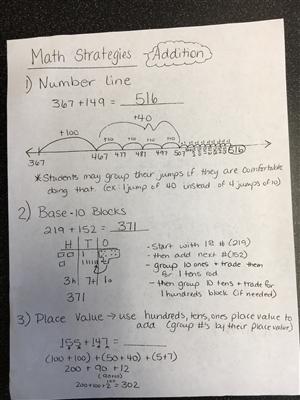 Math Strategies - Addition
1) Number line
367 + 149 = 516
+40
+100 +10 +10 +10 +10
367 467 477 487 497 507 516
*Students may group their jumps if they are comfortable
doing that. (ex: 1 jump of 40 instead of 4 jumps of 10)
2) Base-10 Blocks
219 + 152 = 371
H T O
3h 7t 1o
371
- Start with 1st # (219)
- then add next # (152)
- group 10 ones + trade them
for 1 tens rod
- then group 10 tens + trade for
1 hundreds block (if needed)
3) Place Value → use hundreds, tens, ones place value to
add (group #'s by their place value)
155 + 147 =
(100 + 100) + (50 + 40) + (5+7)
200 + 90 + 12
(90+10)
200+100+2 = 302